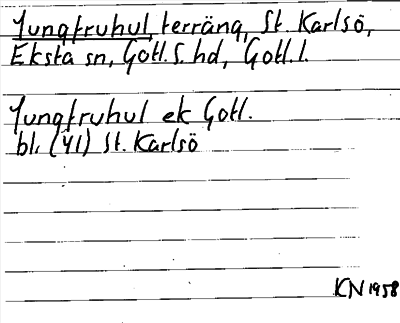 Jungfruhul, terräng, St. Karlsö,
Eksta sn, Gotl. S. hd, Gotl. l.
Jungfruhul ek Gotl.
bl. (41) St. Karlsö
KN 1958